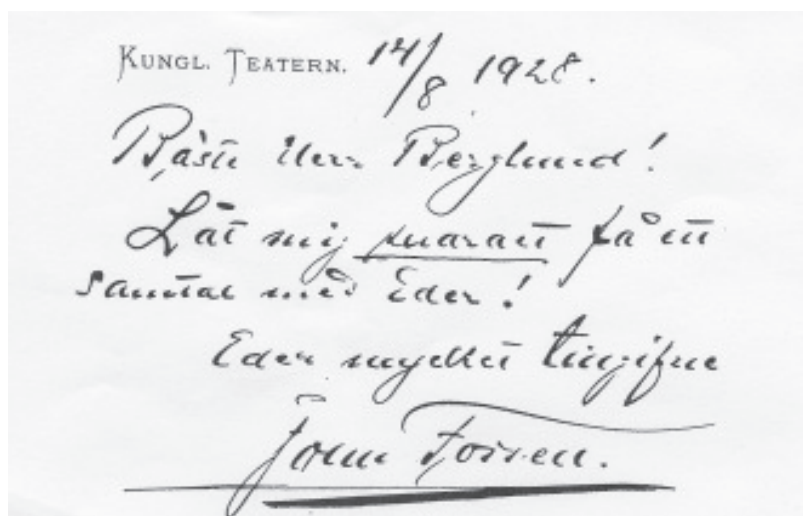 KUNGL. TEATERN. 14/8 1928.
Bäste Herr Berglund!
Låt mig snarast få ett
samtal med Eder!
Eder mycket tillgifne
John Forsell.